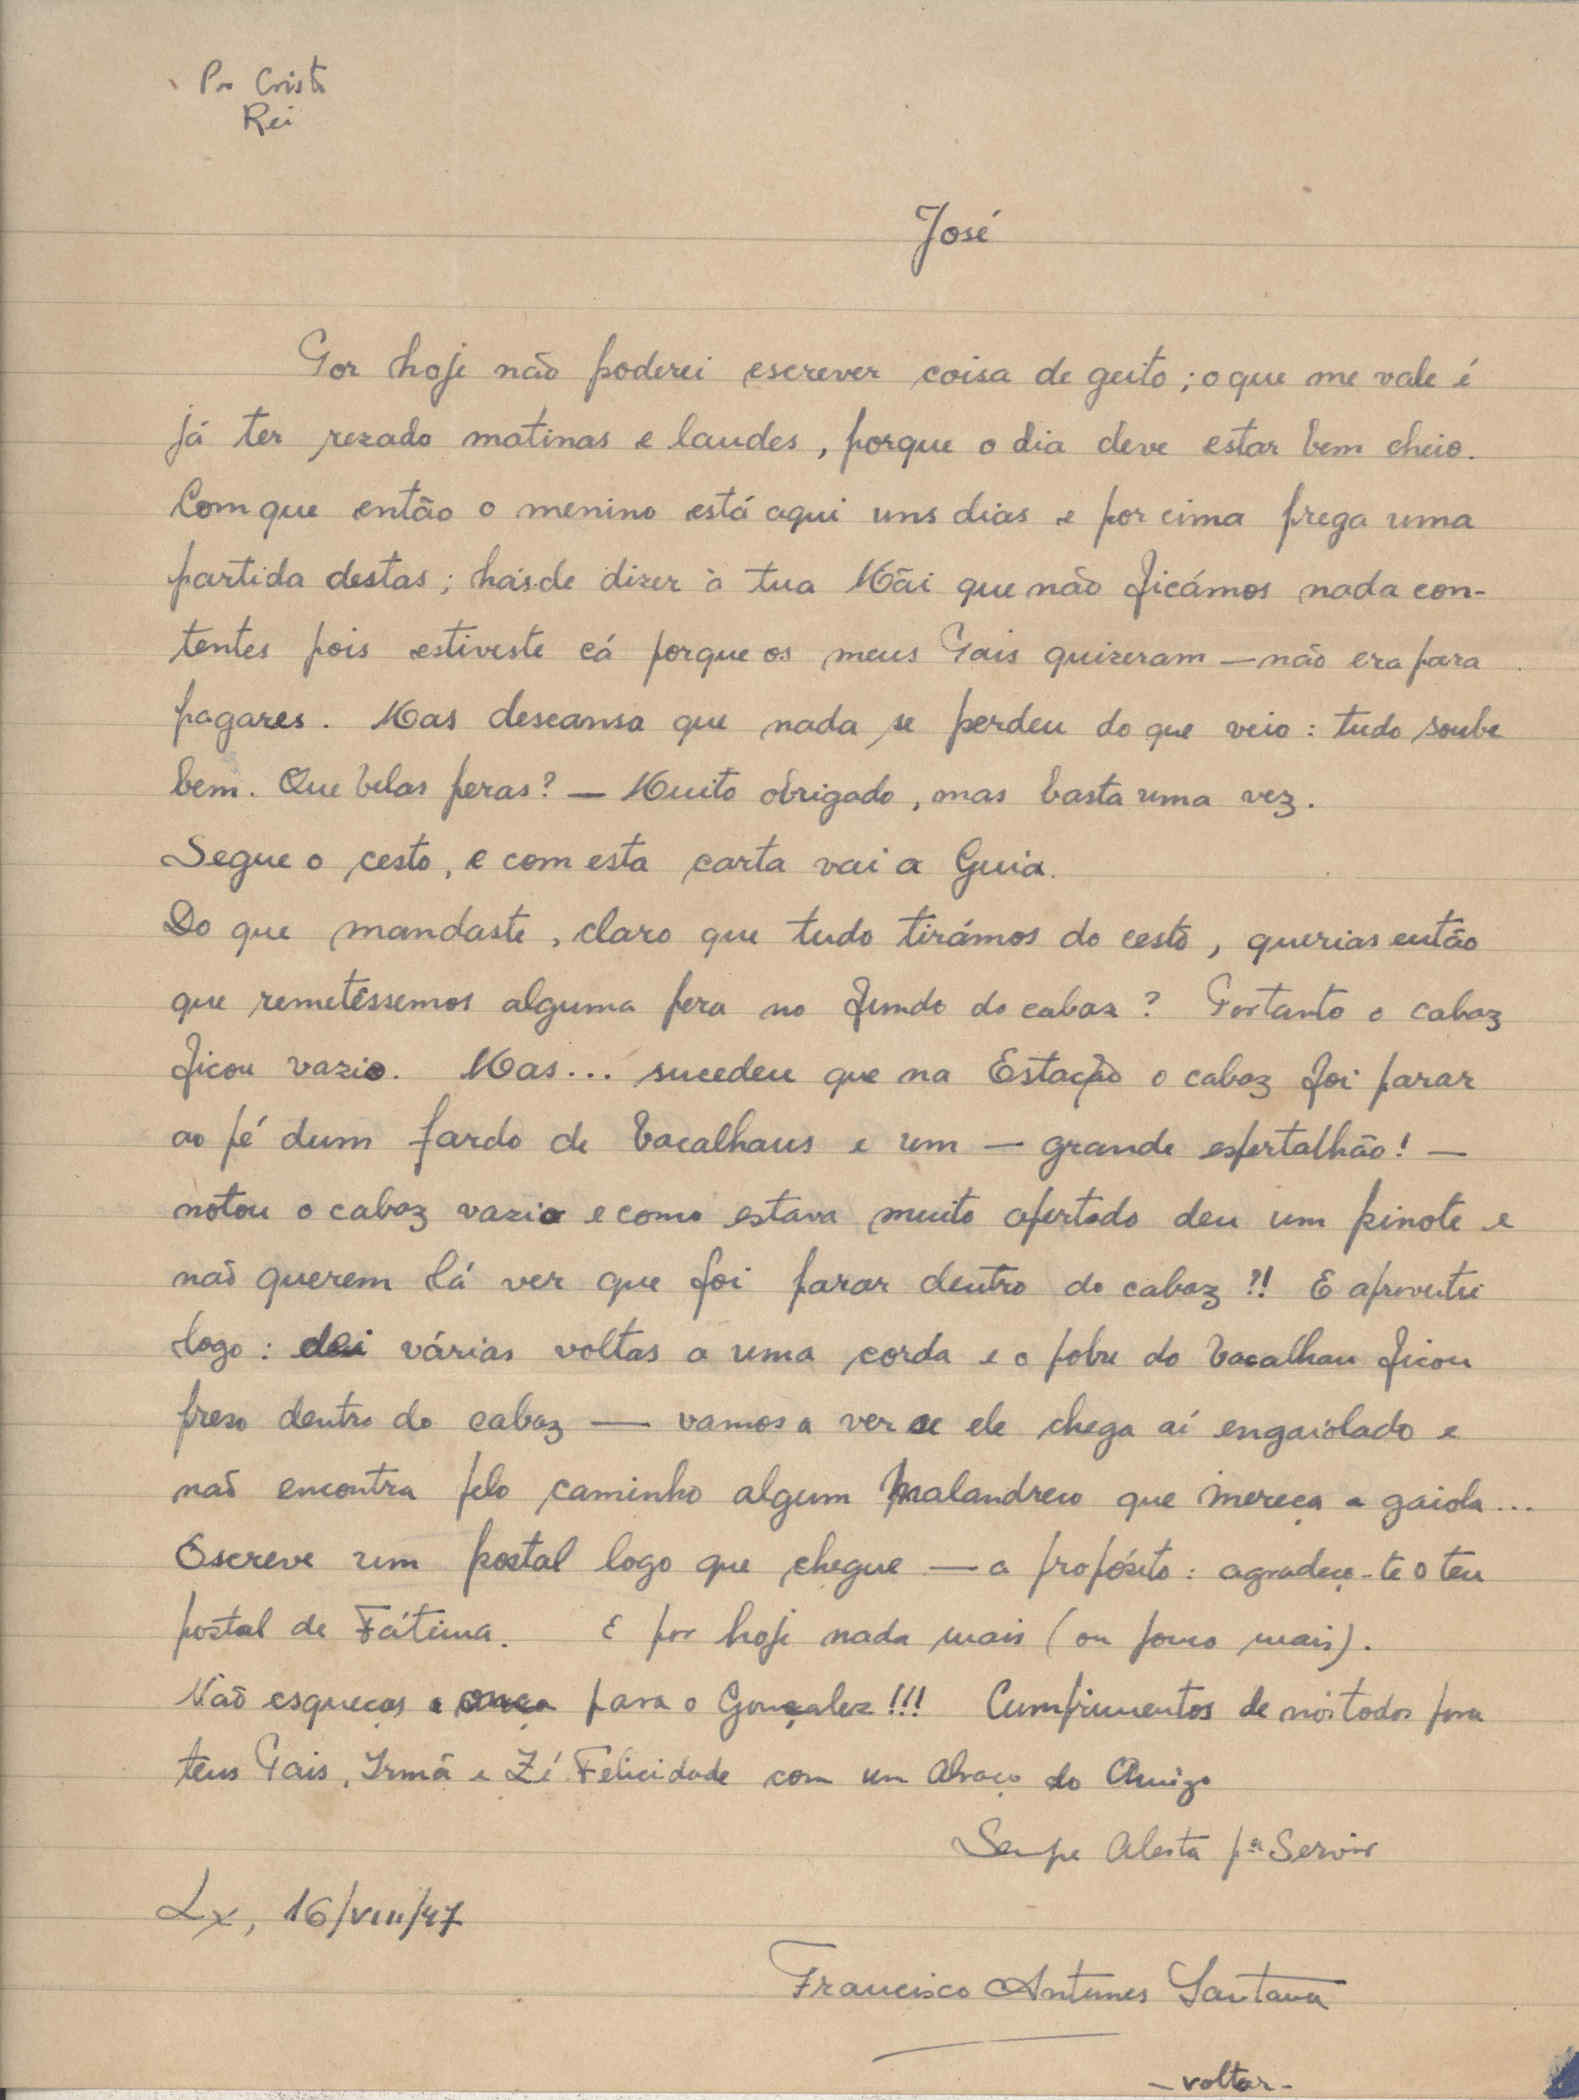 Pro Cristo
Rei
José
Por hoje não poderei escrever coisa de geito; o que me vale é
já ter rezado matinas e laudes, porque o dia deve estar bem cheio.
Com que então o menino está aqui uns dias e por cima prega uma
partida destas; hás.de dizer à tua Mãi que não ficámos nada con-
tentes pois estiveste cá porque os meus Pais quizeram — não era para
pagares. Mas descansa que nada se perdeu do que veio: tudo soube
bem. Que belas peras? — Muito obrigado, mas basta uma vez.
Segue o cesto, e com esta carta vai a Guia.
Do que mandaste, claro que tudo tirámos do cesto, querias então
que remetêssemos alguma pera no fundo do cabaz? Portanto o cabaz
ficou vazio. Mas... sucedeu que na Estação o cabaz foi parar
ao pé dum fardo de bacalhaus e um — grande espertalhão! —
notou o cabaz vazio e como estava muito apertado deu um pinote e
não querem lá ver que foi parar dentro do cabaz?! E aproveitei
logo: dei várias voltas a uma corda e o pobre do bacalhau ficou
preso dentro do cabaz — vamos a ver se ele chega aí engaiolado e
não encontra pelo caminho algum malandreco que mereça a gaiola...
Escreve um postal logo que chegue — a propósito: agradeço-te o teu
postal de Fátima. E por hoje nada mais (ou pouco mais).
Não esqueças a onça para o Gonçalez!!! Cumprimentos de nós todos para
teus Pais, Irmã e Zé Felicidade com um abraço do Amigo
Sempre Alerta pª Servir
Lx, 16/VIII/47
Francisco Antunes Santana
- voltar -